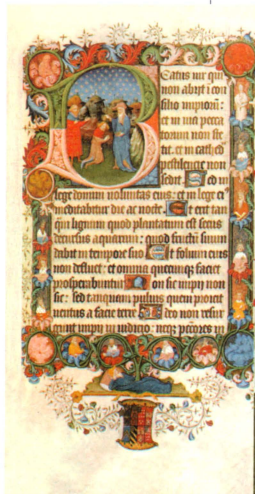 Beatus vir qui
non abijt i con
silio impiorū:
et in via pecca
torum non ste
tit. et in cathed
pestilencie non
sedit. Sed in
lege domini voluntas eius: et in lege ei
meditabitur die ac nocte. Et erit tan
qm lignum quod plantatum est secus
decursus aquarum: quod fructū suum
dabit in tempore suo. Et folium eius
non defluet: et omnia quecumqz faciet
prosperabuntur. Non sic impij non
sic: sed tanquam puluis quem proicit
uentus a facie terre. Ideo non resur
gunt impij in iudicio: neqz pctores in